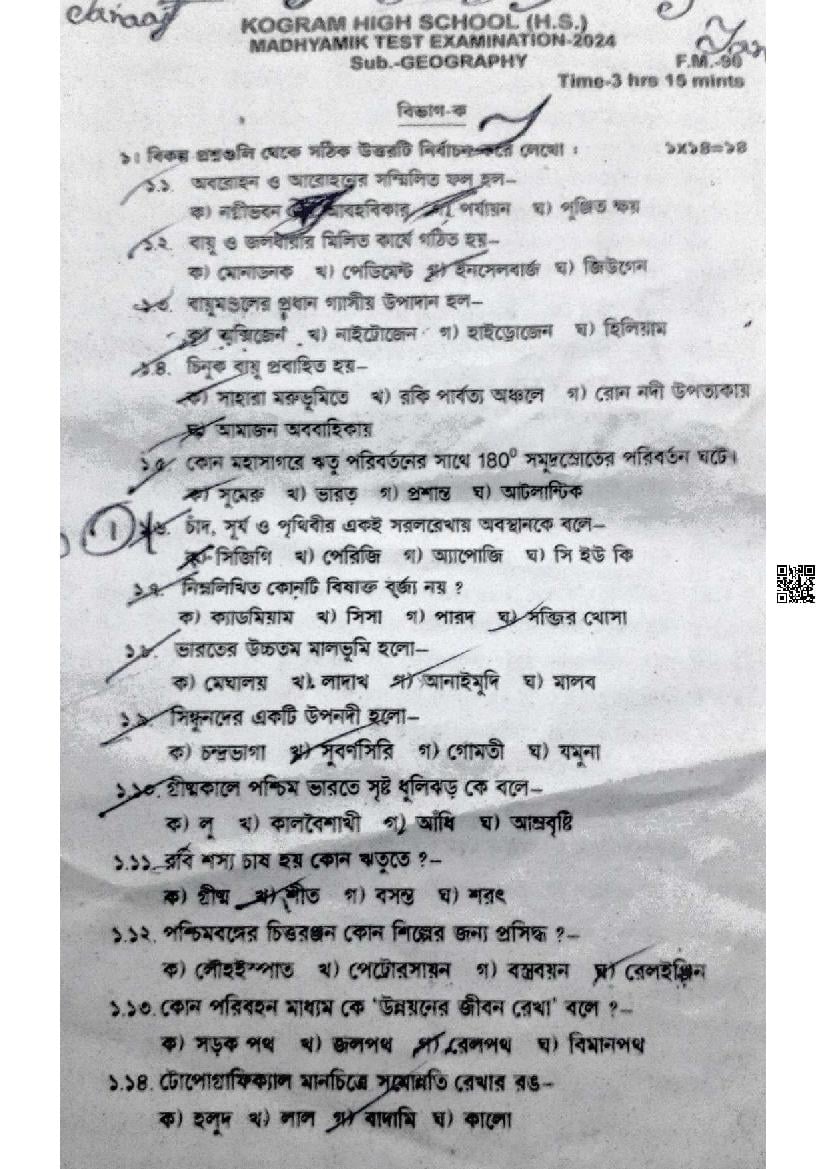 KOGRAM HIGH SCHOOL (H.S.)
MADHYAMIK TEST EXAMINATION-2024
Sub.-GEOGRAPHY F.M.-90
Time-3 hrs 15 mints
বিভাগ-ক
১। বিকল্প প্রশ্নগুলি থেকে সঠিক উত্তরটি নির্বাচন করে লেখো : ১x১৪=১৪
১.১. অবরোহন ও আরোহনের সম্মিলিত ফল হল–
ক) নগ্নীভবন আবহবিকার গ) পর্যায়ন ঘ) পুঞ্জিত ক্ষয়
১.২. বায়ু ও জলধারার মিলিত কার্যে গঠিত হয়–
ক) মোনাডনক খ) পেডিমেন্ট গ) ইনসেলবার্জ ঘ) জিউগেন
১.৩. বায়ুমণ্ডলের প্রধান গ্যাসীয় উপাদান হল–
ক) অক্সিজেন খ) নাইট্রোজেন গ) হাইড্রোজেন ঘ) হিলিয়াম
১.৪. চিনুক বায়ু প্রবাহিত হয়–
ক) সাহারা মরুভূমিতে খ) রকি পার্বত্য অঞ্চলে গ) রোন নদী উপত্যকায়
ঘ) আমাজন অববাহিকায়
১.৫ কোন মহাসাগরে ঋতু পরিবর্তনের সাথে 180⁰ সমুদ্রস্রোতের পরিবর্তন ঘটে।
ক) সুমেরু খ) ভারত গ) প্রশান্ত ঘ) আটলান্টিক
1 ১.৬. চাঁদ, সূর্য ও পৃথিবীর একই সরলরেখায় অবস্থানকে বলে–
ক) সিজিগি খ) পেরিজি গ) অ্যাপোজি ঘ) সি ইউ কি
১.৭. নিম্নলিখিত কোনটি বিষাক্ত বর্জ্য নয় ?
ক) ক্যাডমিয়াম খ) সিসা গ) পারদ ঘ) সব্জির খোসা
১.৮. ভারতের উচ্চতম মালভূমি হলো–
ক) মেঘালয় খ) লাদাখ গ) আনাইমুদি ঘ) মালব
১.৯. সিন্ধুনদের একটি উপনদী হলো–
ক) চন্দ্রভাগা খ) সুবর্ণসিরি গ) গোমতী ঘ) যমুনা
১.১০. গ্রীষ্মকালে পশ্চিম ভারতে সৃষ্ট ধূলিঝড় কে বলে–
ক) লু খ) কালবৈশাখী গ) আঁধি ঘ) আম্রবৃষ্টি
১.১১. রবি শস্য চাষ হয় কোন ঋতুতে ?–
ক) গ্রীষ্ম খ) শীত গ) বসন্ত ঘ) শরৎ
১.১২. পশ্চিমবঙ্গের চিত্তরঞ্জন কোন শিল্পের জন্য প্রসিদ্ধ ?–
ক) লৌহইস্পাত খ) পেট্রোরসায়ন গ) বস্ত্রবয়ন ঘ) রেলইঞ্জিন
১.১৩. কোন পরিবহন মাধ্যম কে 'উন্নয়নের জীবন রেখা' বলে ?–
ক) সড়ক পথ খ) জলপথ গ) রেলপথ ঘ) বিমানপথ
১.১৪. টোপোগ্রাফিক্যাল মানচিত্রে সমোন্নতি রেখার রঙ–
ক) হলুদ খ) লাল গ) বাদামি ঘ) কালো